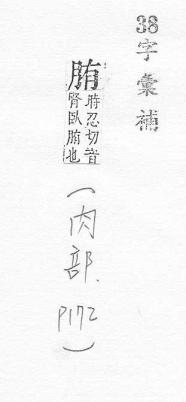 38字彙補
時忍切音
腎臥也
(肉部. P172)